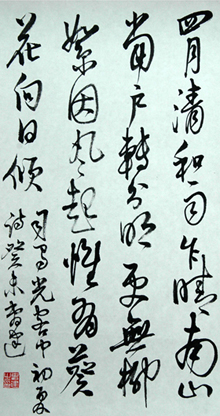 四月清和雨乍晴南山
當戶轉分明更無柳
絮因風起惟有葵
花向日傾
司馬光客中初夏
詩癸未